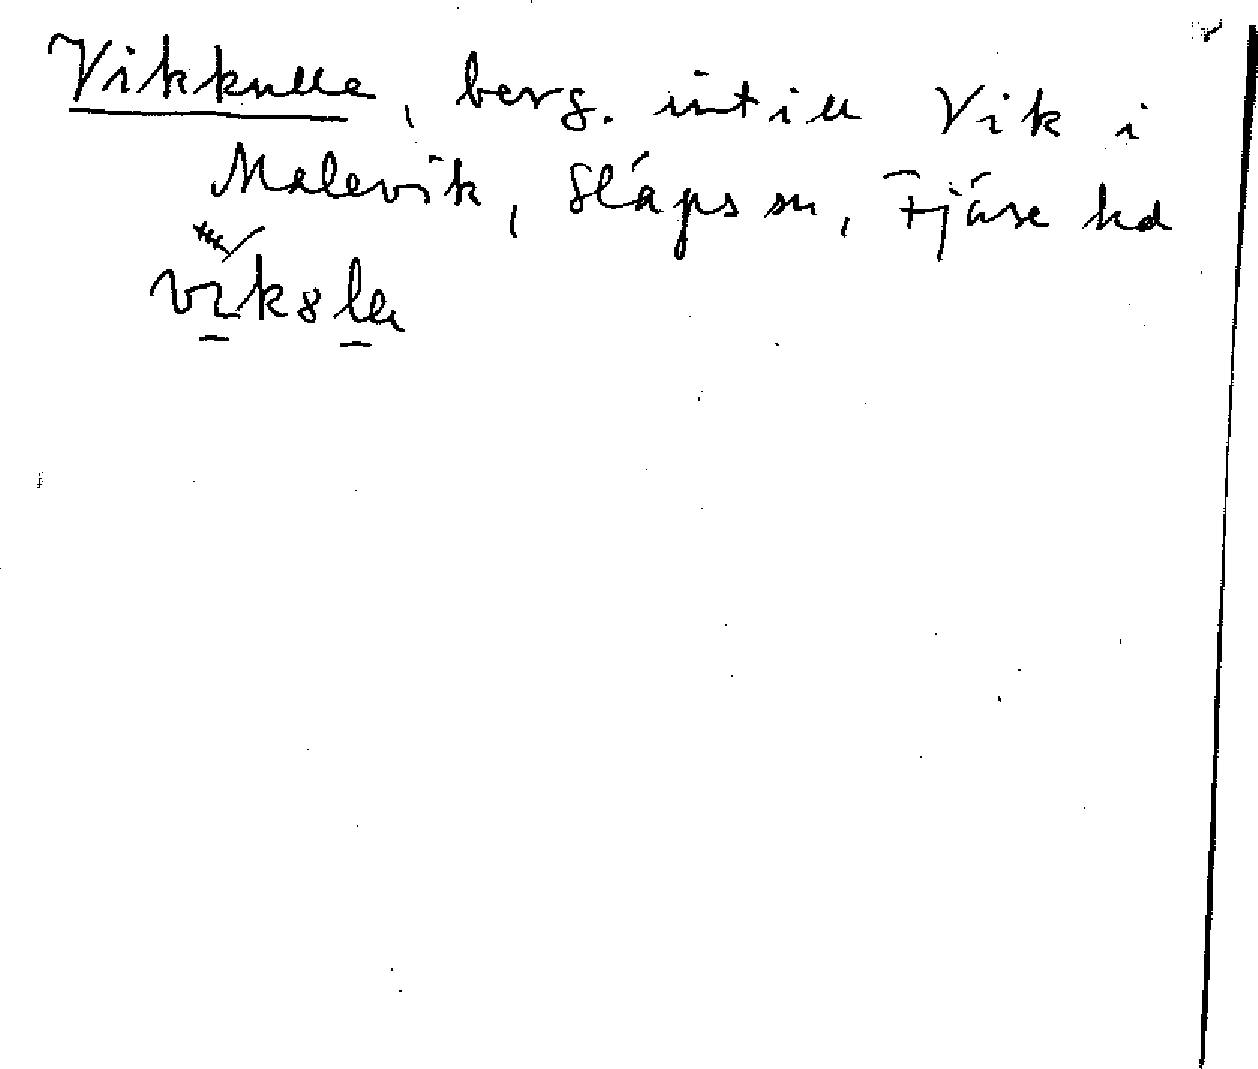 Vikkulle, berg. intill Vik i
Malevik, Släps sn, Fjäre hd